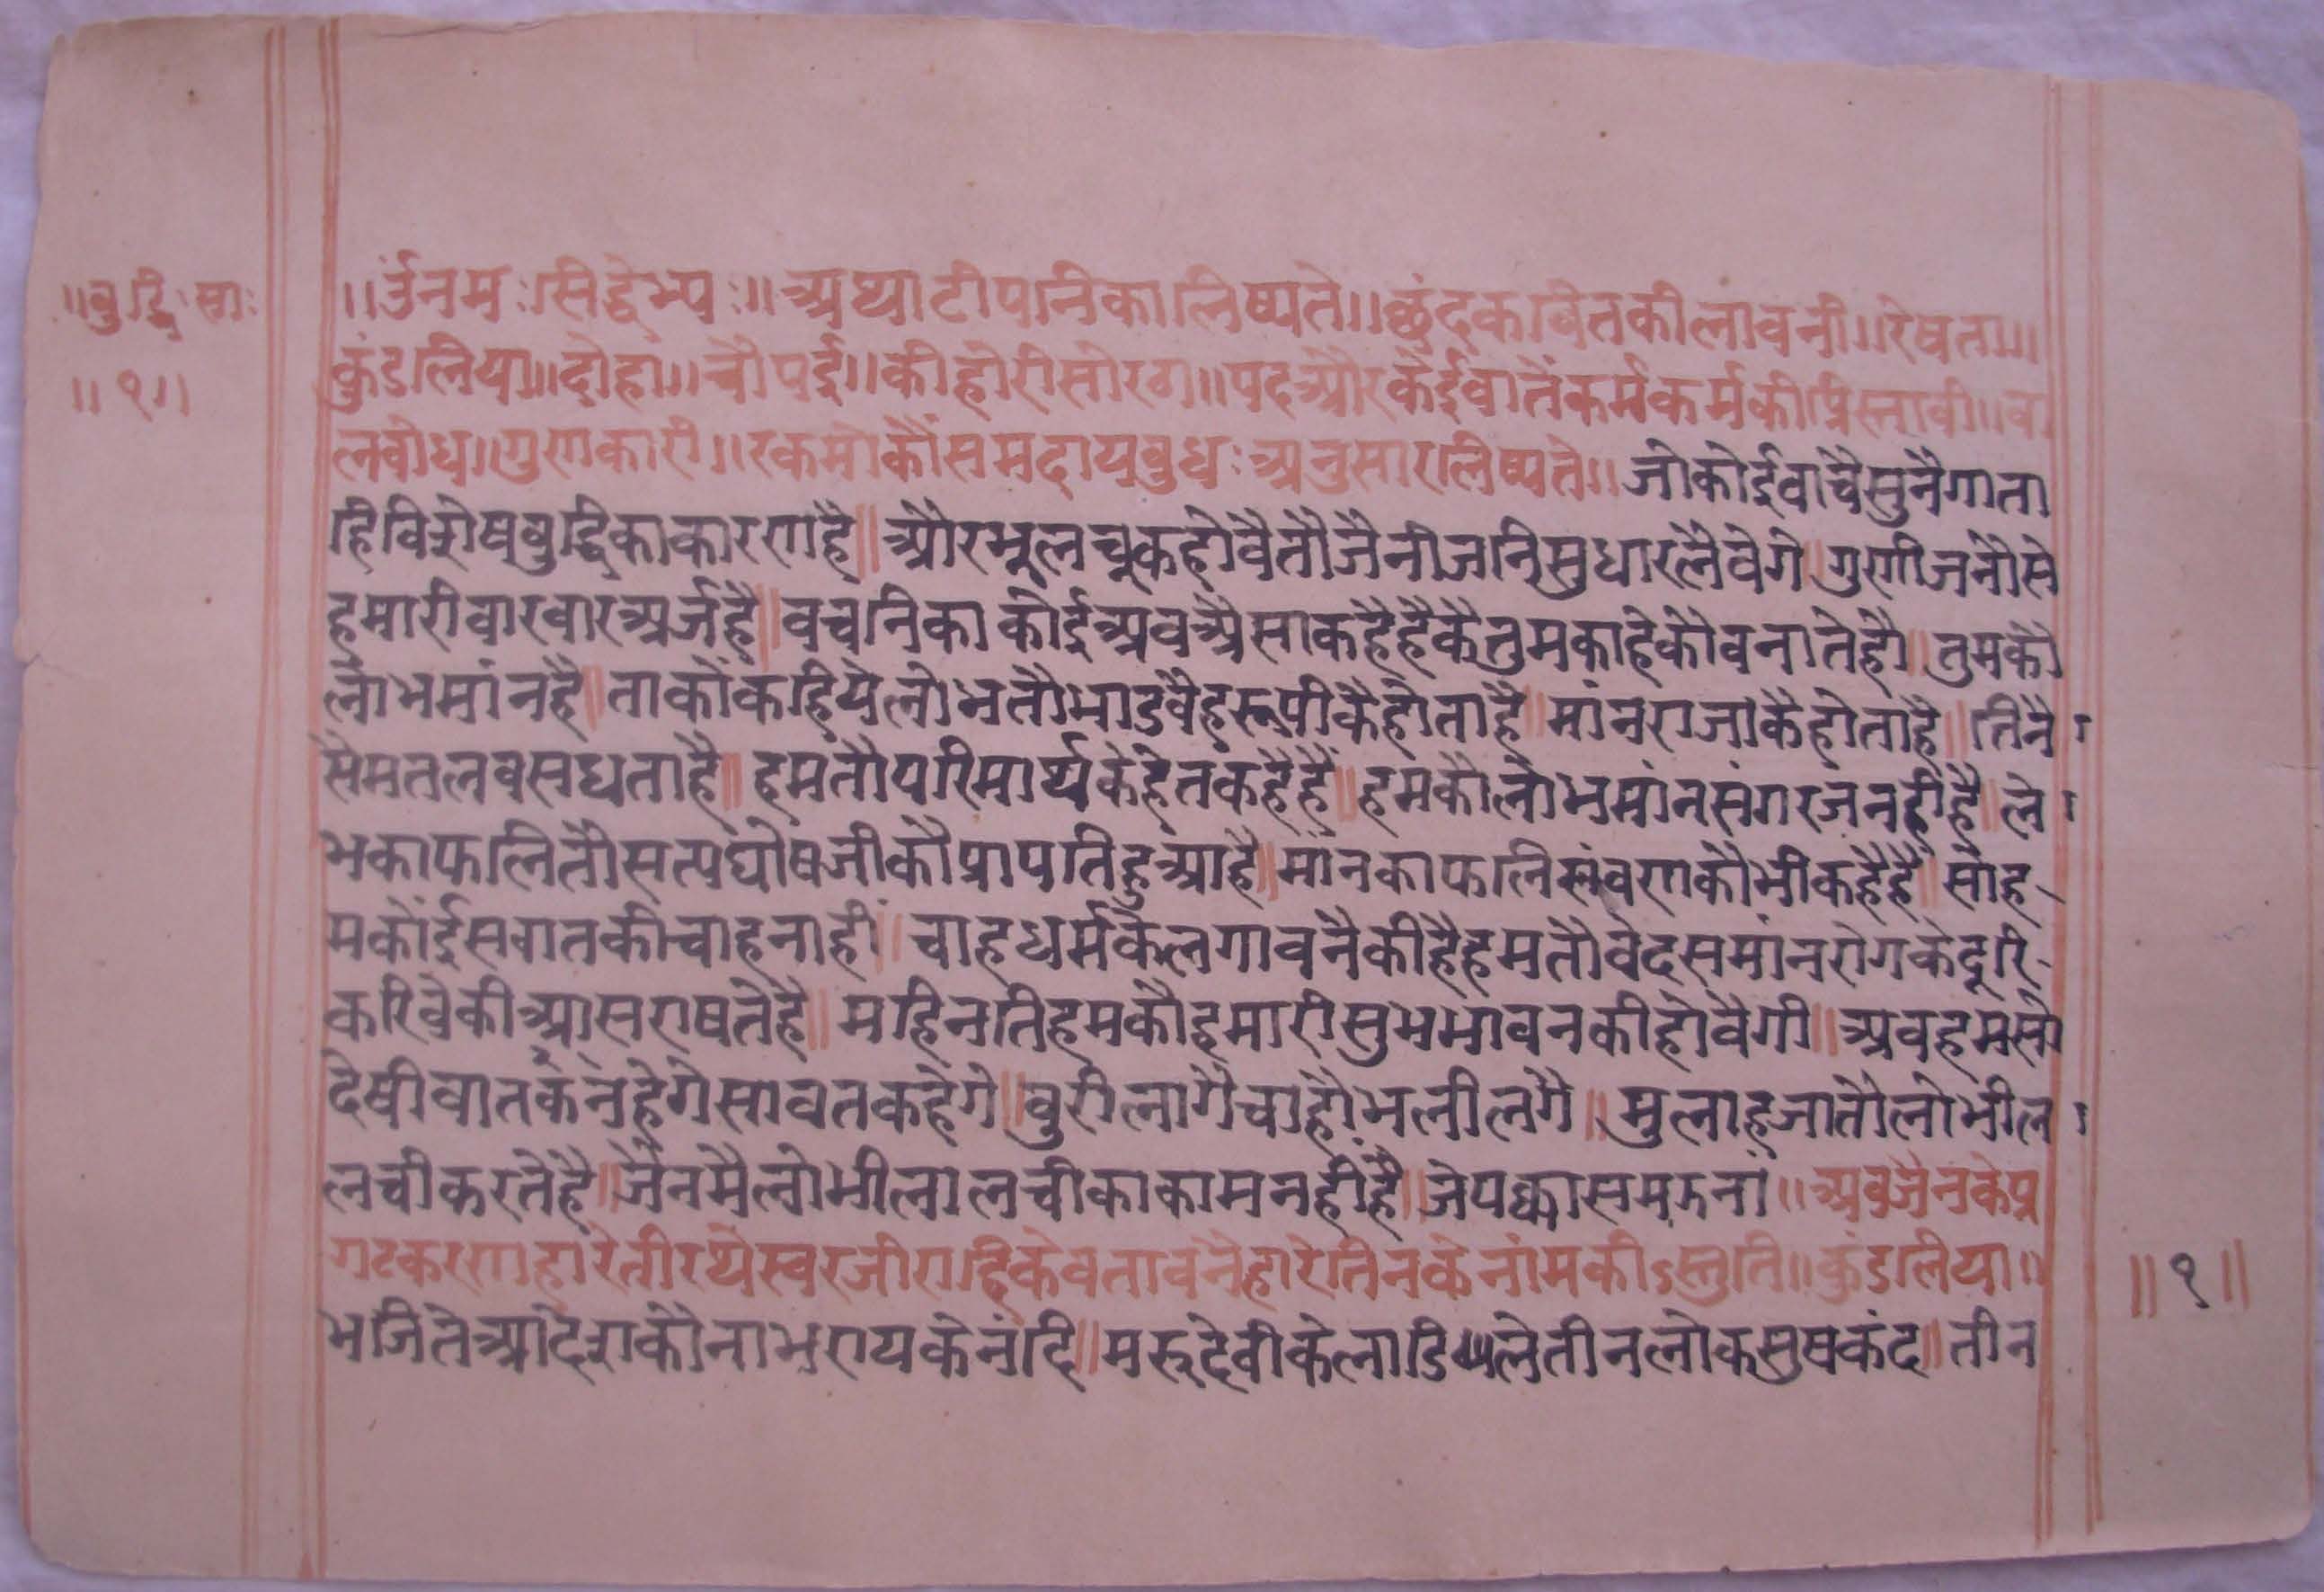 ॥बुद्धि सा॰
॥१॥
॥र्उनमःसिद्धेभ्यः॥अथाटीपनिकालिष्यते॥छंदकवितकीलावनी॥रेषता॥
कुंडलिया॥दोहा॥चौपई॥कीहोरीसोरठा॥पदऔरकेईवातैंकर्मकर्मकीप्रिस्तावी॥वा
लवोध॥गुणकारी॥रकमोकौंसमदायबुधःअनुसारलिष्यते॥जोकोईवाचैसुनैगाता
हिविशेषबुद्धिकाकारणहै॥औरभूलचूकहोवैतौजैनीजनिसुधारलैवेगे॥गुणीजनोसे
हमारीवारवारअर्जहै॥वचनिकाकोईअवऐसाकहैहैकैतुमकाहेकौवनातेहौ॥तुमकौ
लोभमांनहै॥ताकौंकहियेलोभतौभाडवैहरूपीकैहोताहै॥मांनराजाकैहोताहै॥तिनै
सेमतलवसधताहै॥हमतौपरिमार्थकेहेतकहैहैं॥हमकौलोभमांनसंगरजनहीहै॥लो
भकाफलितौसत्यघोषजीकौप्रापतिहुआहै॥मानकाफलिसंवरणकौभीकहैहै॥सोह
मकोंईसवातकीचाहनाही॥चाहधर्मकैलगावनैकीहैहमतौवेदसमांनरोगकेदूरि
करिवेकीआसराषतेहै॥महिनतिहमकौहमारीसुभभावनकीहोवैगी॥अवहमसो
देषीवातकंनहेगेसावतकहेगे॥वुरीलागेचाहौभलीलगै॥मुलाहजातौलोभील
लचीकरतेहै॥जैनमैलोभीलालचीकाकामनहींहै॥जेपक्कासमझनां॥अवजैनकेप्र
गटकरणहारेतीरथेस्वरजीराहिकेवतावनैहारेतिनकेनांमकीऽस्तुति॥कुंडलिया॥
भजितेआदेशकौनाभरायकेनंदि॥मरुदेवीकेलाडिलेतीनलोकसुषकंद॥तीन
॥१॥